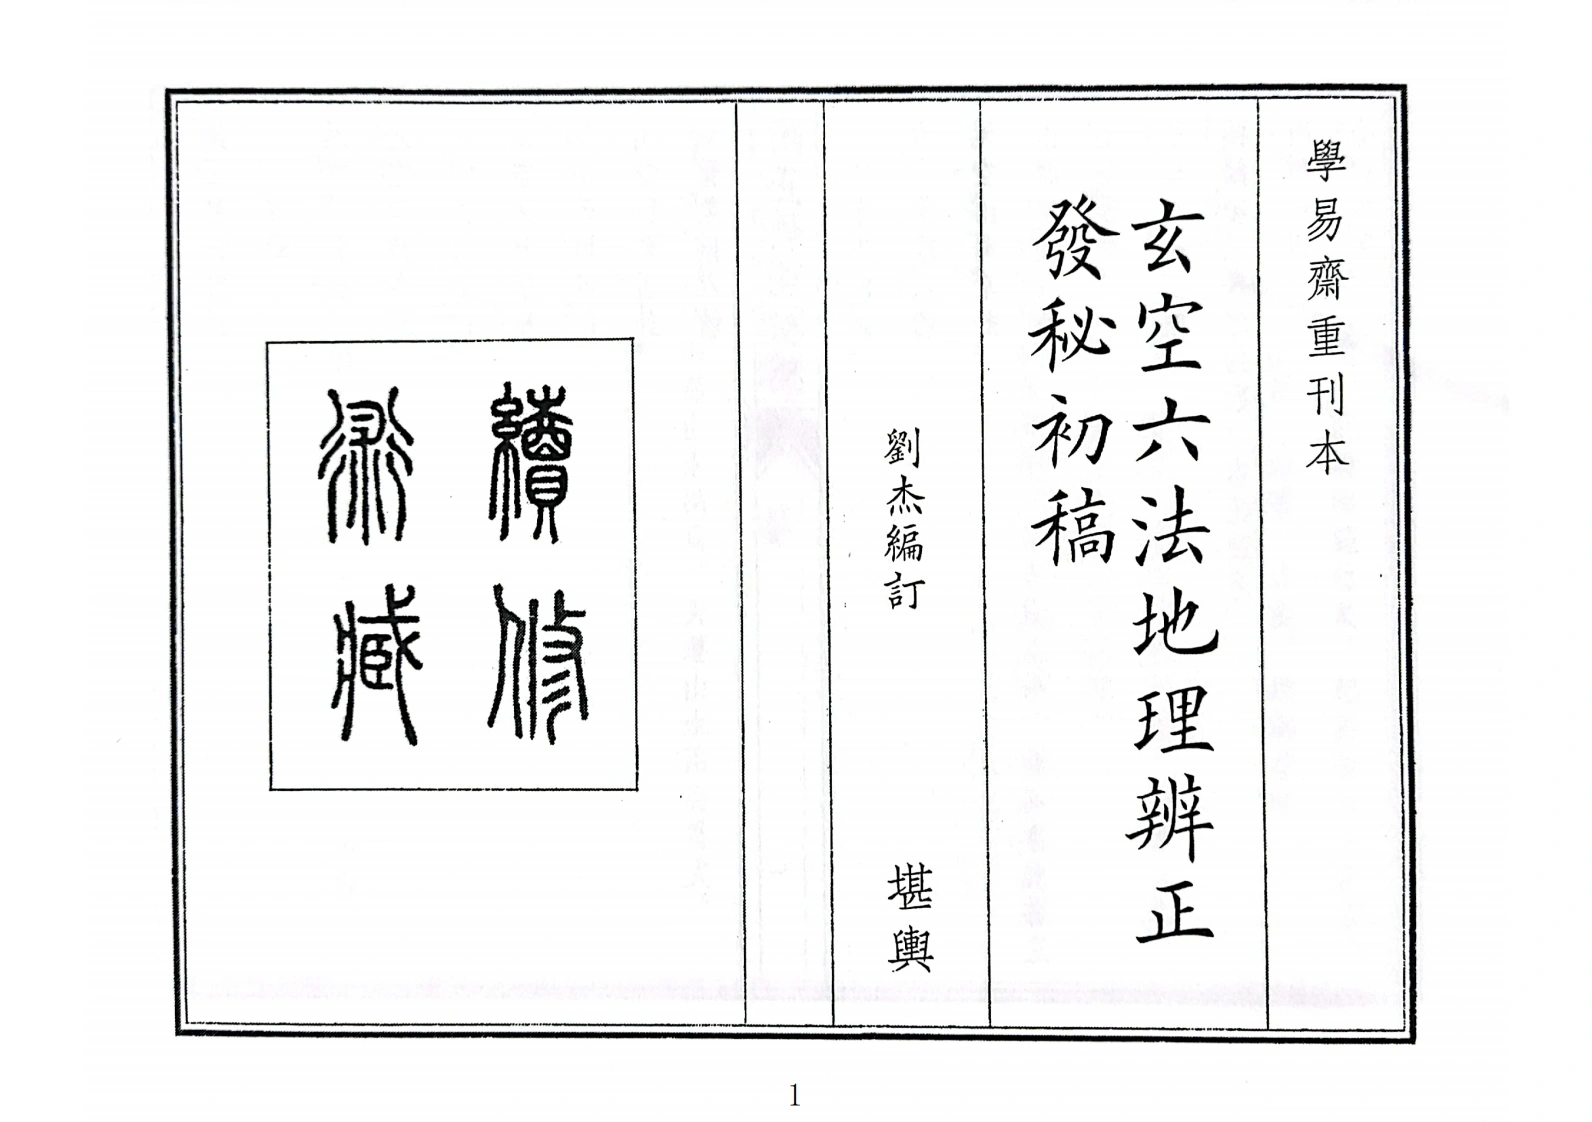 學易齋重刊本
玄空六法地理辨正
發秘初稿
劉杰編訂
堪輿
續修
藏
1